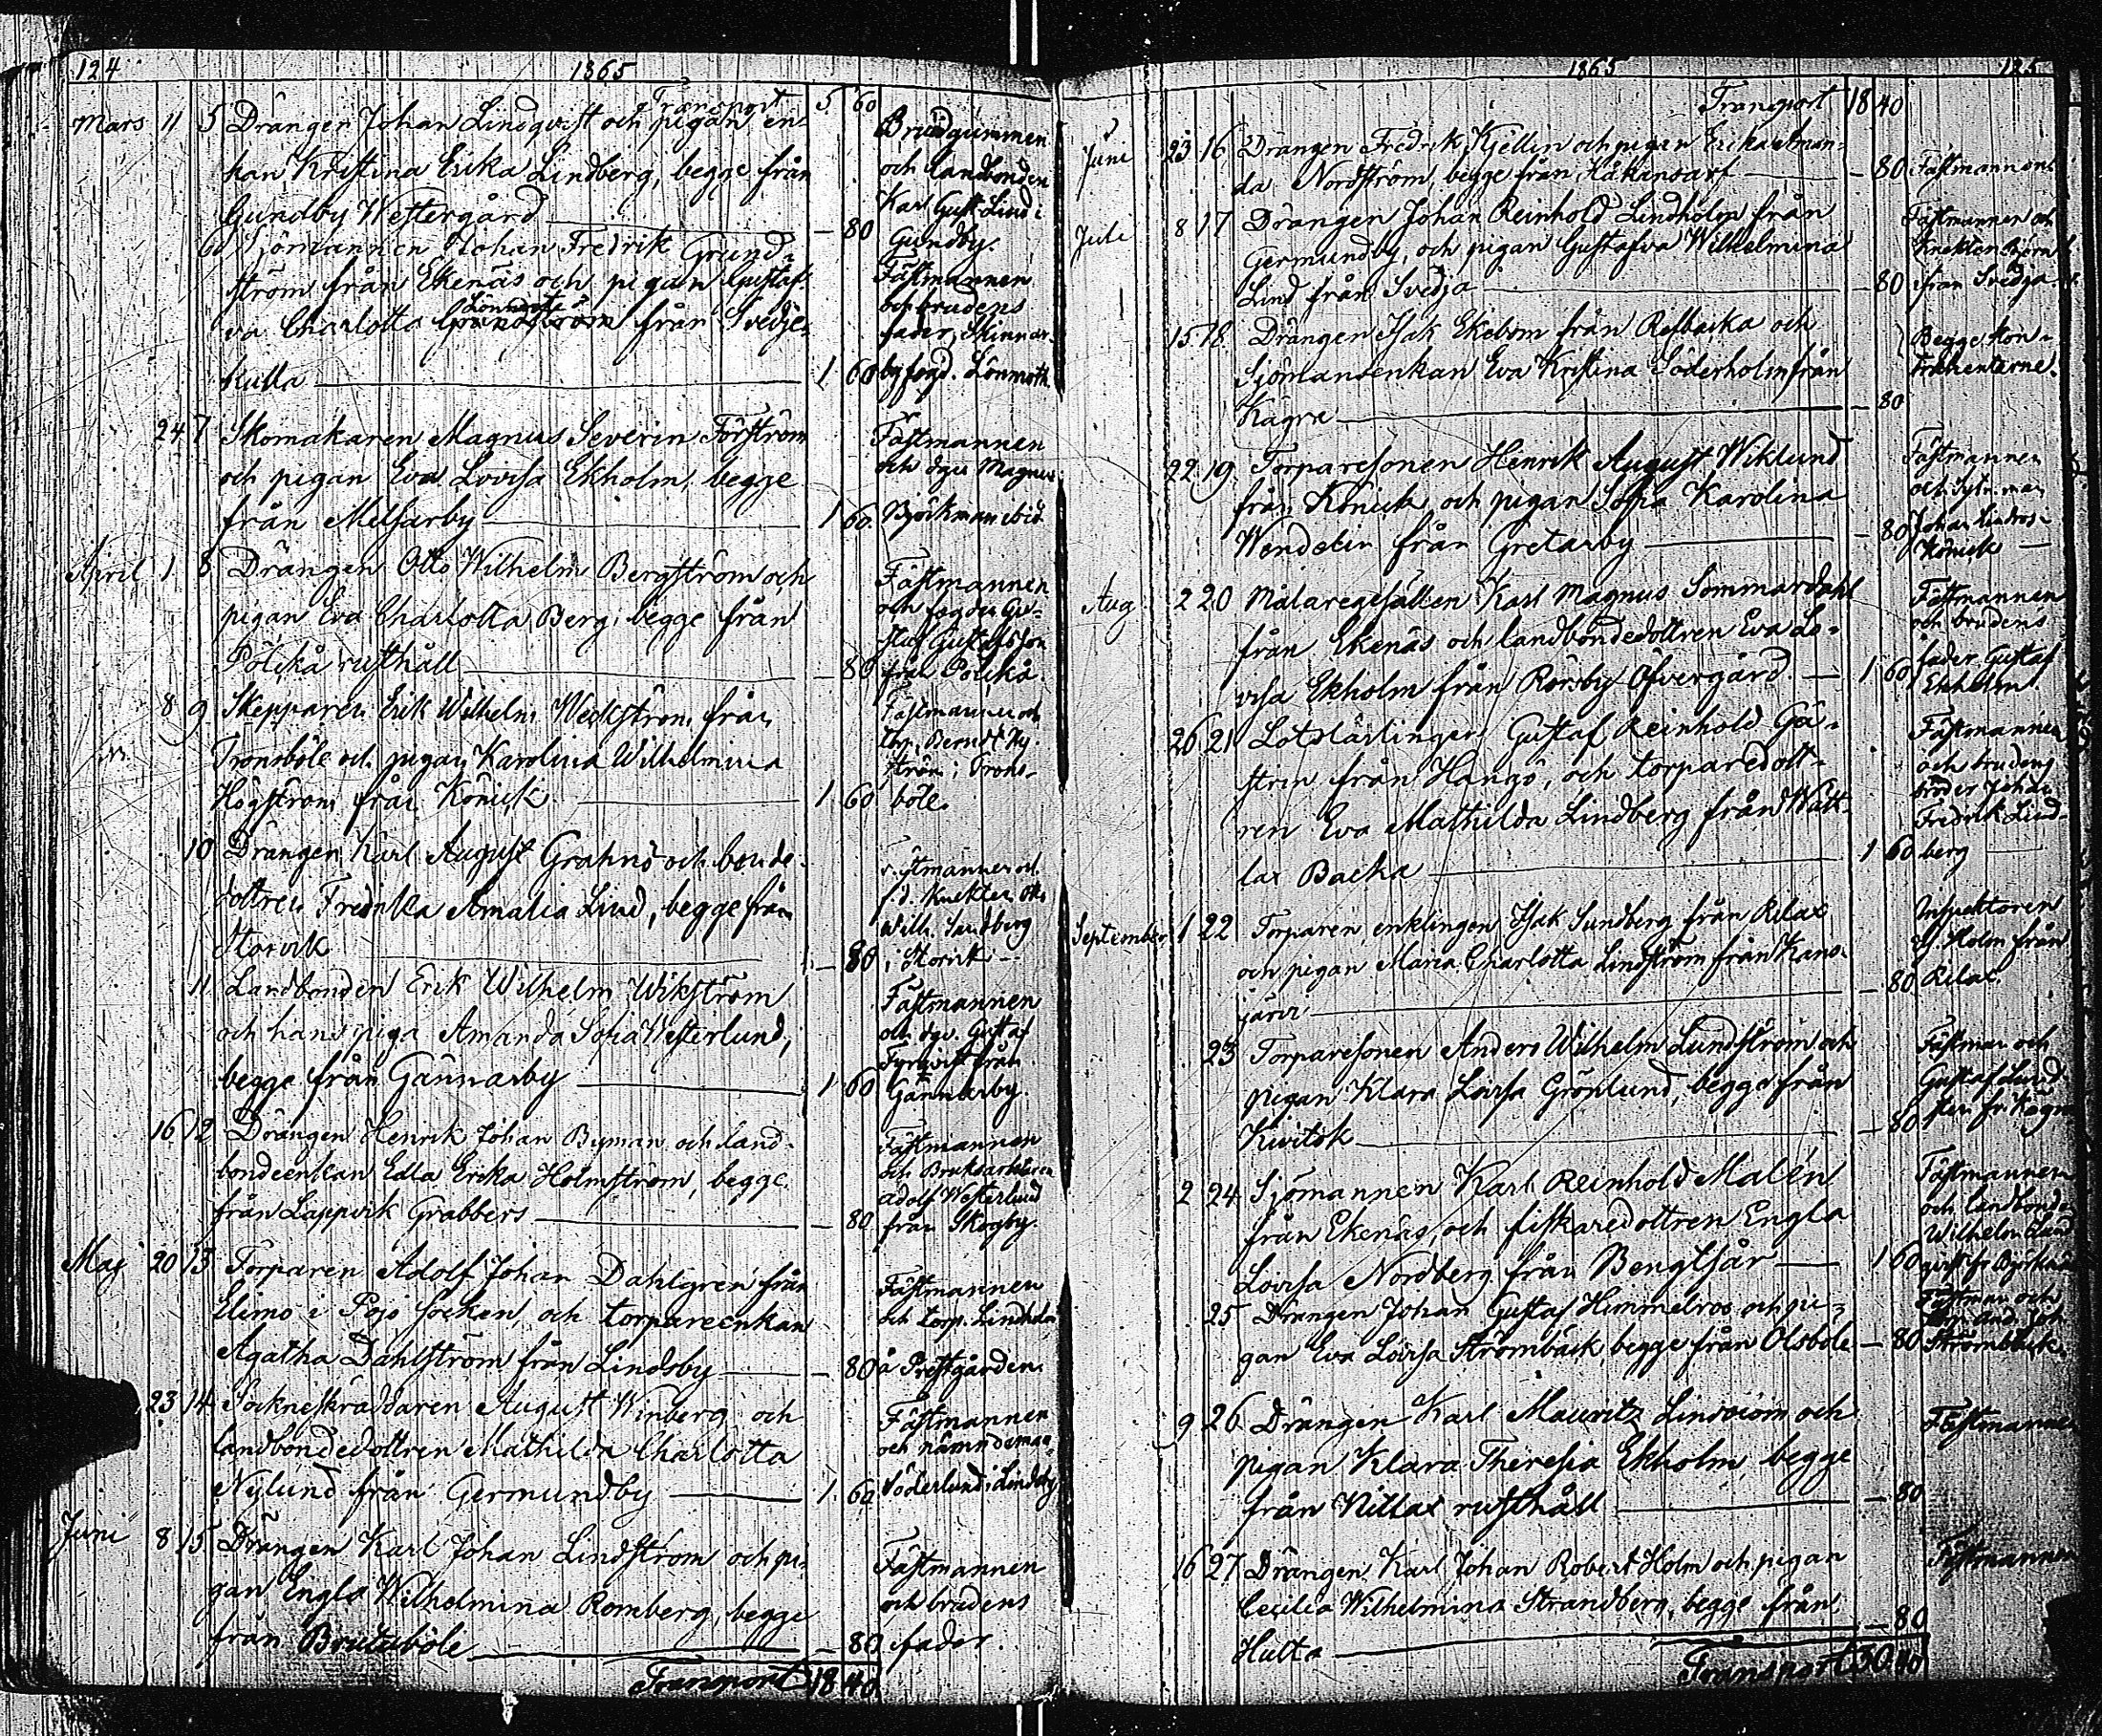 124 1865
Transport 5 60
Mars 11 5 Drängen Johan Lindqvist och pigan en-
kan Kristina Erika Lindberg, begge från
Gundby Westergård — 80
Brudgummen
och landbonden
Karl Gust. Lind i
Gundby.
6 Sjömannen Johan Fredrik Grund-
ström från Ekenäs och pigan Gustaf-
va Charlotta Lönnmoth från Svedje-
kulla 1 60
Fästmannen
och brudens
fader, Skinnar-
byfogd. Lönmoth
24 7 Skomakaren Magnus Severin Forström
och pigan Eva Lovisa Ekholm, begge
från Melsarby 1 60
Fästmannen
och Magnus
Björkman ibid
April 1 8 Drängen Otto Wilhelm Bergström och
pigan Eva Charlotta Berg, begge från
rusthåll — 80
Fästmannen
och fogden Gu-
staf Gustafsson
från
8 9 Skepparen Erik Wilhelm Weckström från
Tronsböle och pigan Karolina Wilhelmina
Högström från Könick 1 60
Fästmannen och
torp. Berndt Ny-
ström i Trons-
böle.
10 Drängen Karl August Grahn och bonde-
dottren Fredrika Amalia Lind, begge från
Storvik — 80
Fästmannen och
f.d. Knekten
Wilh. Sundberg
i Storvik
11 Landbonden Erik Wilhelm Wikström
och hans piga Amanda Sofia Westerlund,
begge från Gännarby 1 60
Fästmannen
och Gustaf
från
Gännarby.
16 12 Drängen Henrik Johan Byman och land-
bondeenkan Edla Erika Holmström, begge
från Lappvik Grabbers — 80
Fästmannen
och Bruksarbetaren
Adolf Westerlund
från Skogby.
Maj 20 13 Torparen Adolf Johan Dahlgren från
Elimo i Pojo socken, och torpareenkan
Agatha Dahlström från Lindsby — 80
Fästmannen
och torp. Lindholm
å Prestgården.
23 14 Sockneskräddaren August Winberg och
landbondedottren Mathilda Charlotta
Nylund från Germundby 1 60
Fästmannen
och nämndeman
Söderlund i Lindsby
Juni 8 15 Drängen Karl Johan Lindström och pi-
gan Engla Wilhelmina Romberg, begge
från Brutuböle — 80
Fästmannen
och brudens
fader.
Transport 18 40
1865 125
Transport 18 40
Juni 23 16 Drängen Fredrik Kjellin och pigan Erika Aman-
da Nordström, begge från Håkansarf — 80
Fästmannen
Juli 8 17 Drängen Johan Reinhold Lindholm från
Germundby, och pigan Gustafva Wilhelmina
Lind från Svedja — 80
Fästmannen och
Knekten Björn
från Svedja
15 18 Drängen Isak Ekebom från Refbacka och
Sjömansenkan Eva Kristina Söderholm från
Kägra — 80
Begge Kon-
trahenterne.
22 19 Torparesonen Henrik August Wiklund
från Könick och pigan Sofia Karolina
Wendelin från Gretarby — 80
Fästmannen
och
Johan Lindros
Könick
Aug 2 20 Målaregesällen Karl Magnus Sommardahl
från Ekenäs och landbondedottren Eva Lo-
visa Ekholm från Rörsby Öfvergård 1 60
Fästmannen
och brudens
fader Gustaf
Ekholm.
26 21 Lotslärlingen Gustaf Reinhold Gä-
strin från Hangö, och torparedott-
ren Eva Mathilda Lindberg från Wätt-
lar Backa 1 60
Fästmannen
och brudens
broder Johan
Fredrik Lind-
berg
September 1 22 Torparen, enklingen Isak Sundberg från Rilax
och pigan Maria Charlotta Lindström från Kans-
järvi — 80
Inspektoren
Holm från
Rilax.
23 Torparesonen Anders Wilhelm Lundström och
pigan Klara Lovisa Grönlund, begge från
Kivitok — 80
Fästman och
Gustaf Lund-
2 24 Sjömannen Karl Reinhold Malén
från Ekenäs, och fiskaredottren Engla
Lovisa Nordberg från Bengtsår 1 60
Fästmannen
och landbonde
Wilhelm
25 Drängen Johan Gustaf Himmelroos och pi-
gan Eva Lovisa Strömbäck, begge från Olsböle — 80
Fästman och
torp. And. Joh
Strömbäck.
9 26 Drängen Karl Mauritz Lindroos och
pigan Klara Theresia Ekholm, begge
från Kittax rusthåll — 80
Fästmannen
16 27 Drängen Karl Johan Robert Holm och pigan
Cecilia Wilhelmina Strandberg, begge från
Hulta — 80
Fästmannen
Transport 30 40